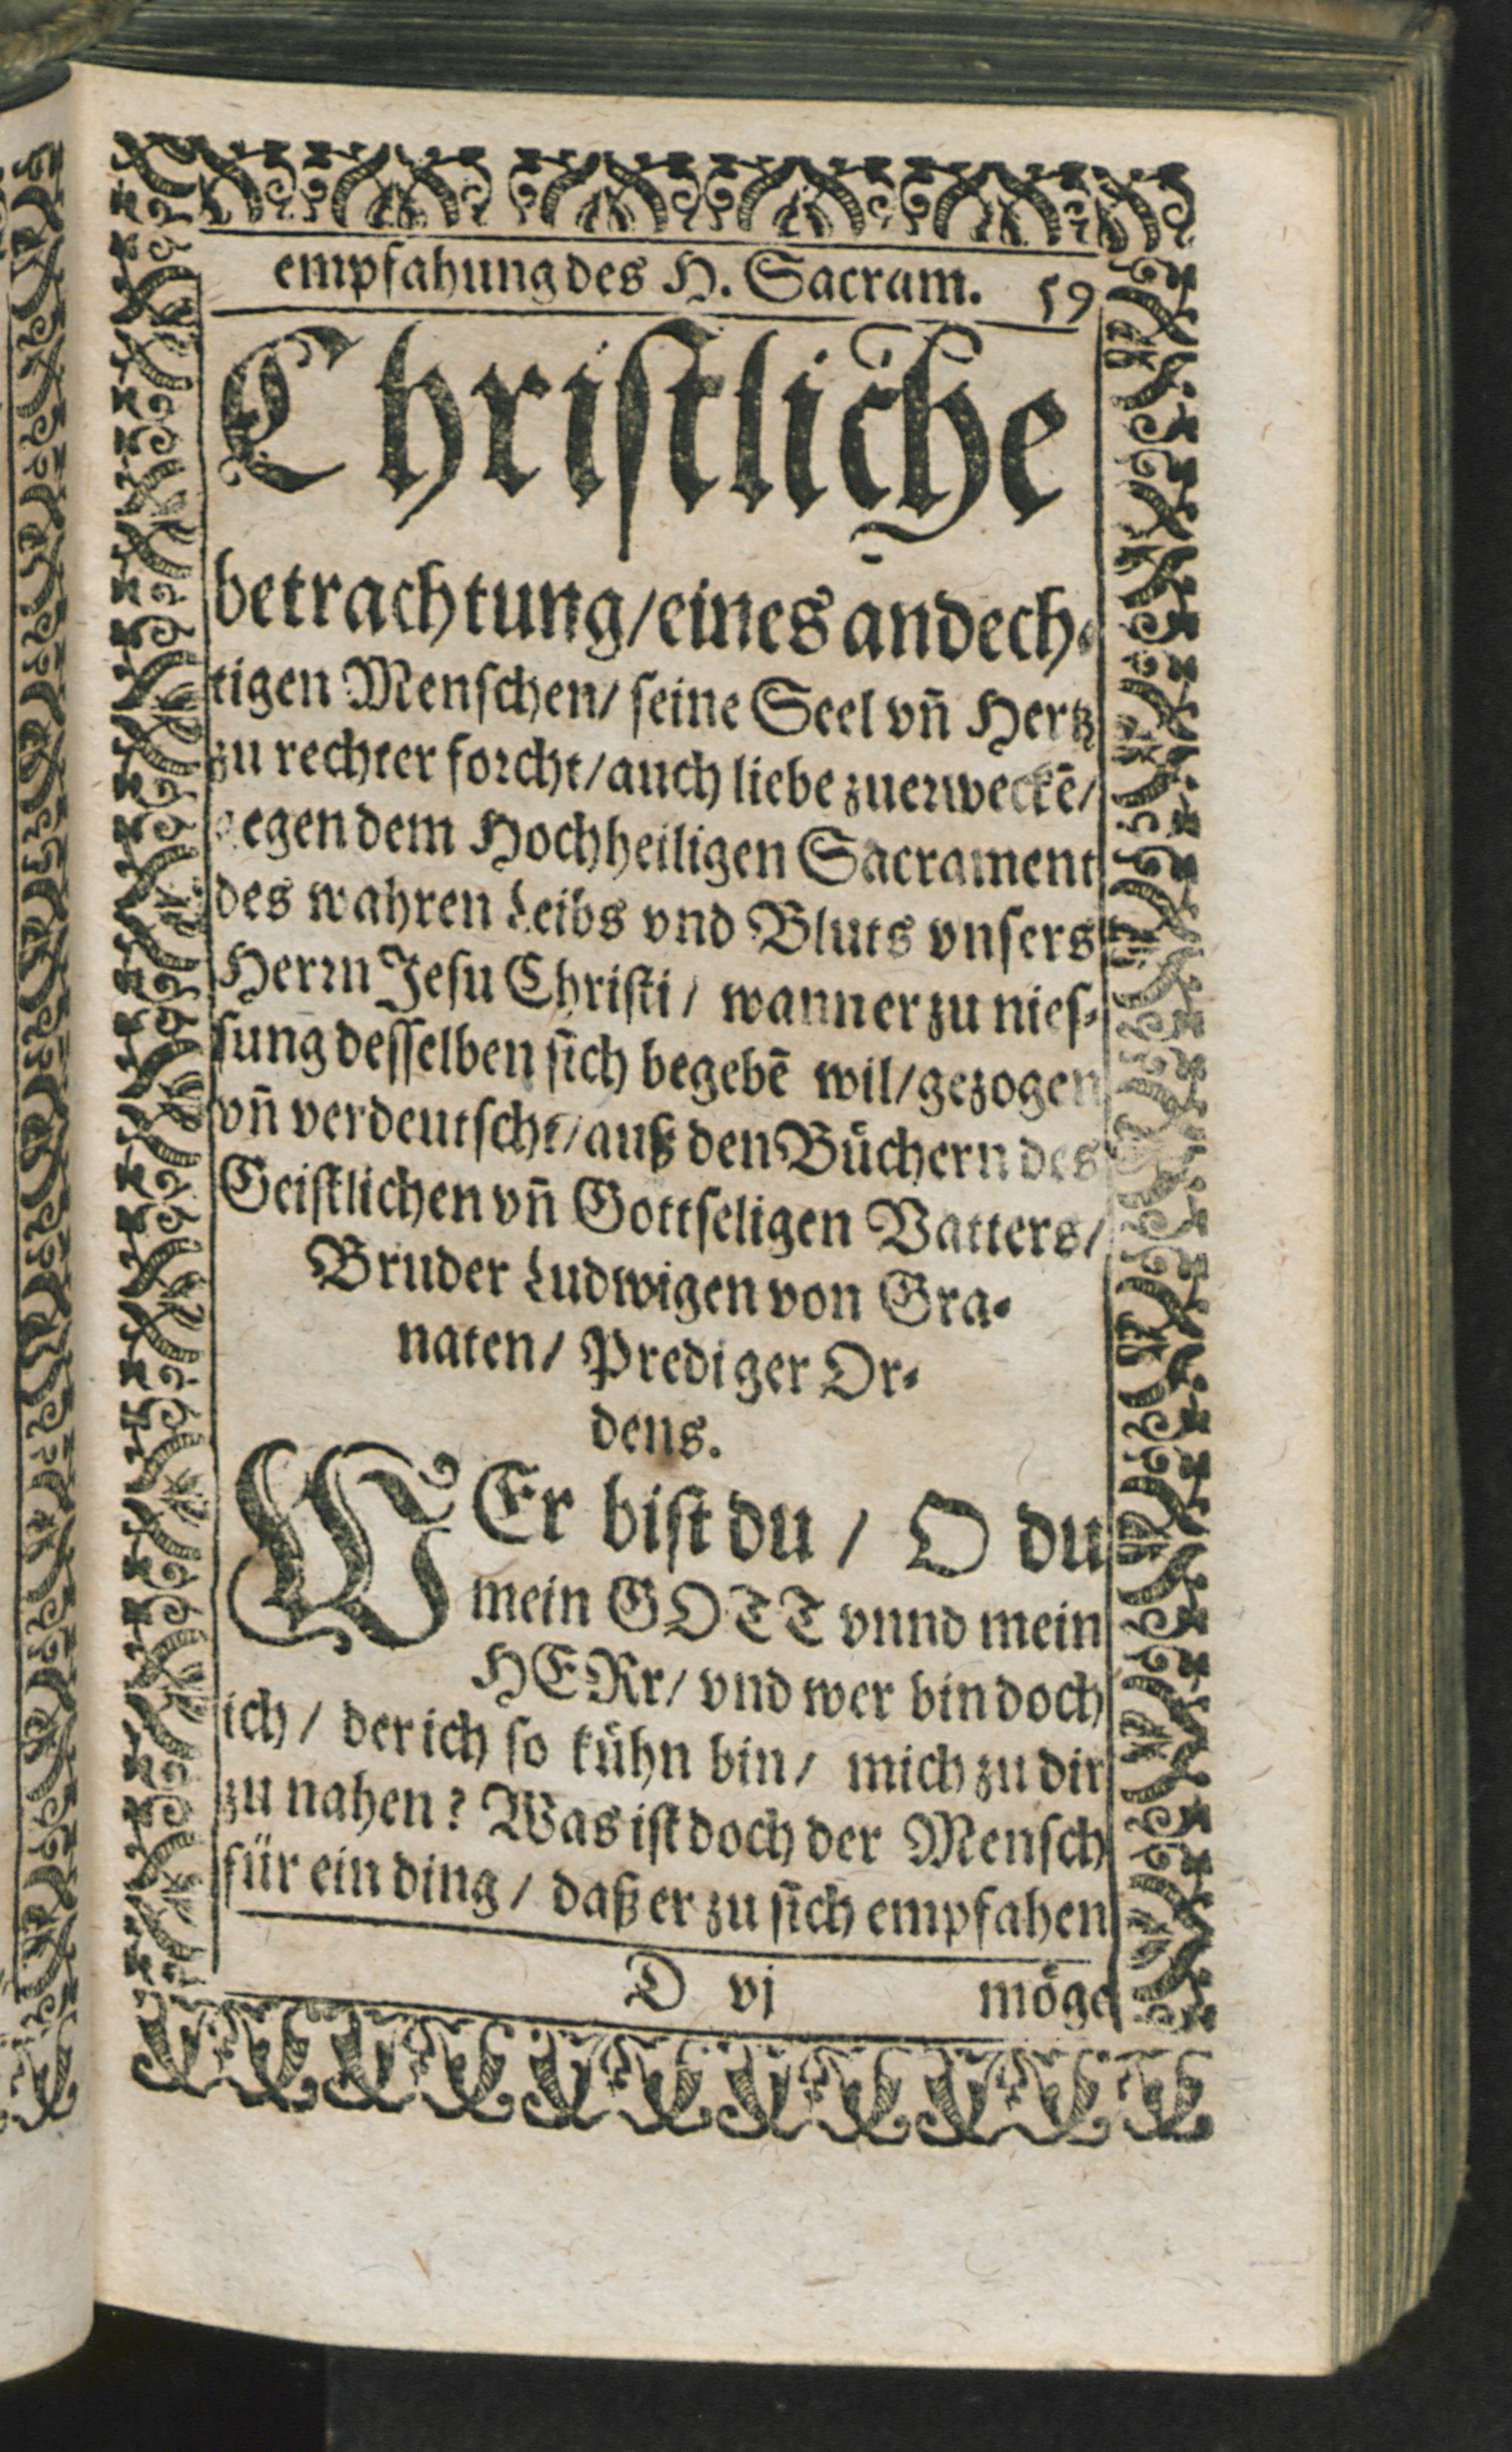 empfahung des H. Sacram. 59
Christliche
betrachtung/eines andech⸗
tigen Menschen/ seine Seel vn̄ Hertz
zu rechter forcht/auch liebe zuerweckē/
gegen dem Hochheiligen Sacrament
des wahren Leibs vnd Bluts vnsers
Herrn Jesu Christi/ wann er zu nies⸗
sung desselben sich begebē wil/gezogen
vn̄ verdeutscht/auß den Büchern des
Geistlichen vn̄ Gottseligen Vatters/
Bruder Ludwigen von Gra⸗
naten/ Prediger Or⸗
dens.
WEr bist du/ O du
mein GOTT vnnd mein
HERr/ vnd wer bin doch
ich/ der ich so kühn bin/ mich zu dir
zu nahen? Was ist doch der Mensch
für ein ding/ daß er zu sich empfahen
D vj möge